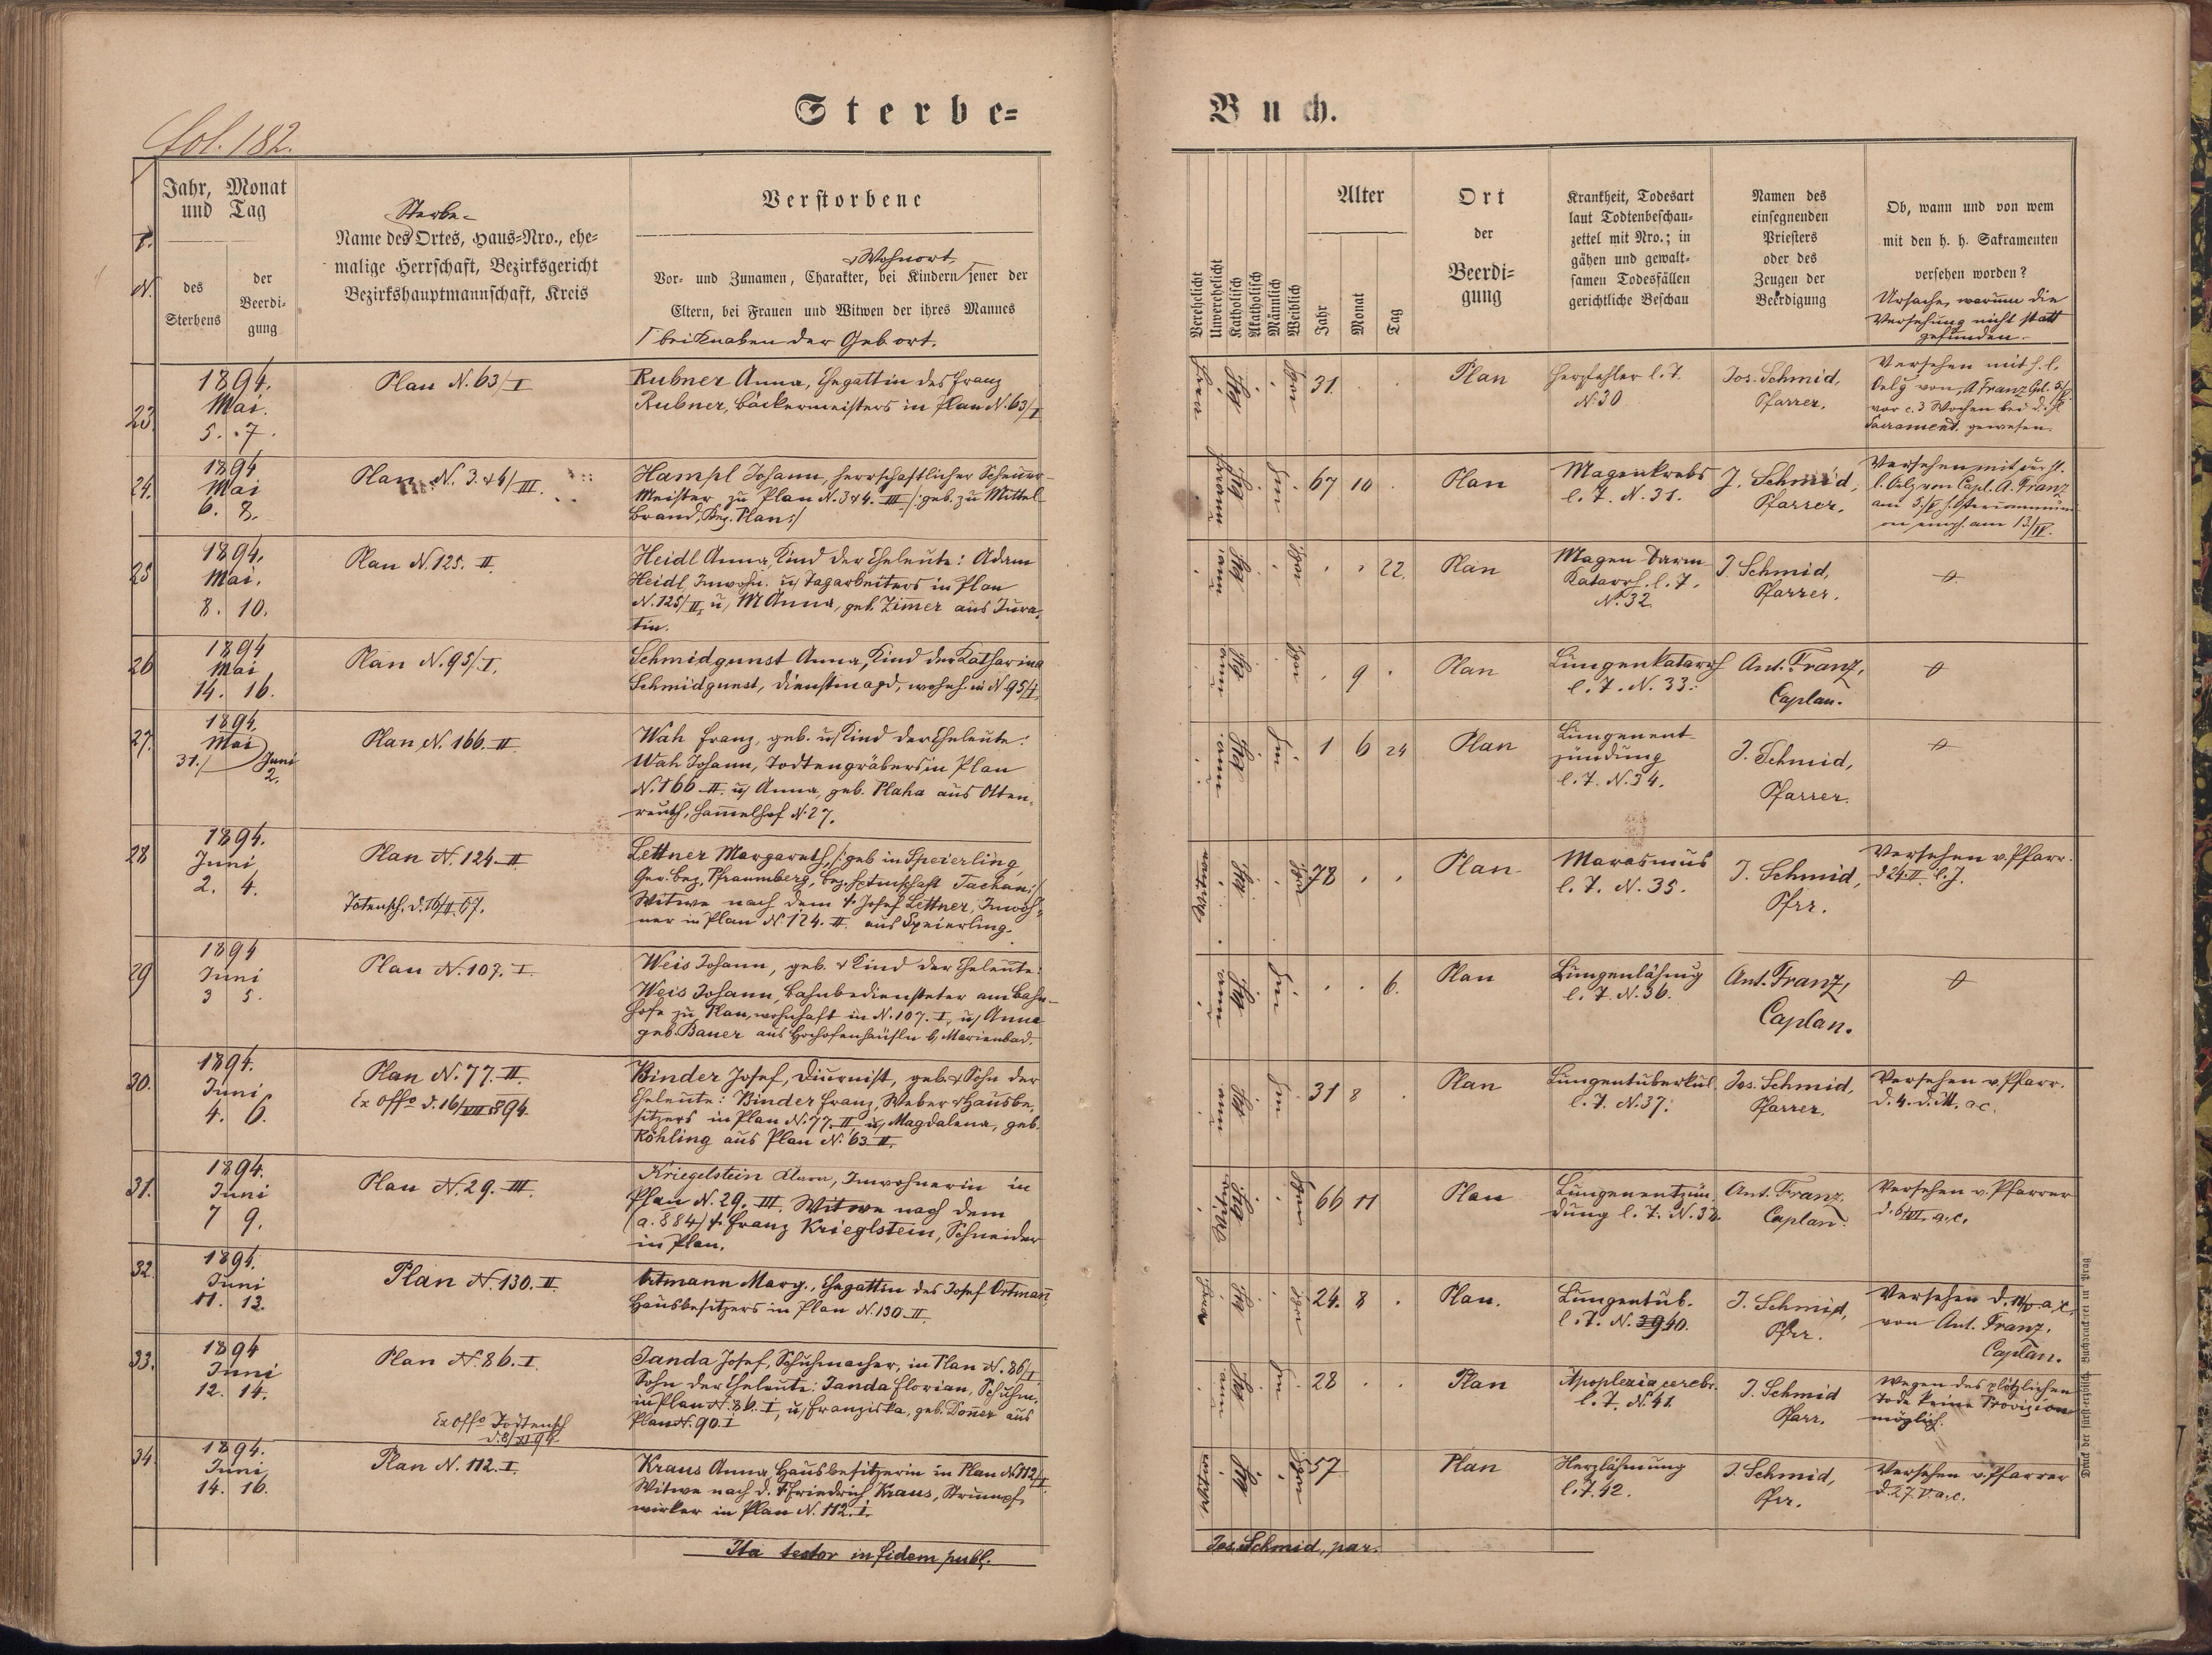 Sterbe-
Buch.
fol. 182.
Jahr, Monat
und Tag
des
Sterbens
der
Beerdi-
gung
Sterbe-
Name des Ortes, Haus-Nro., ehe-
malige Herrschaft, Bezirksgericht
Bezirkshauptmannschaft, Kreis
Verstorbene
Wohnort
Vor- und Zunamen, Charakter, bei Kindern jener der
Eltern, bei Frauen und Witwen der ihres Mannes
bei Knaben der Gebort.
Verehelicht
Unverehelicht
Katholisch
Akatholisch
Männlich
Weiblich
Alter
Jahr
Monat
Tag
Ort
der
Beerdi-
gung
Krankheit, Todesart
laut Todtenbeschau-
zettel mit Nro.; in
gähen und gewalt-
samen Todesfällen
gerichtliche Beschau
Namen des
einsegnenden
Priesters
oder des
Zeugen der
Beerdigung
Ob, wann und von wem
mit den h. h. Sakramenten
versehen worden?
Ursache, warum die
Versehung nicht statt
gefunden.
23.
1894.
Mai.
5. 7.
Plan N. 63/I
Rubner Anna, Ehegattin des Franz
Rubner, Bäckermeisters in Plan N. 63/I
31.
Plan
Herzfehler l. T.
N. 30
Jos. Schmid,
Pfarrer.
Versehen mit h. l.
Oelg von A Franz
vor c. 3 Wochen bei d. hl
Sacrament. gewesen.
24.
1894
Mai
6. 8.
Plan N. 3 & 4/III.
Hampl Johann, herrschaftlicher Scheuer-
Meister zu Plan N. 3 & 4. III /: geb. zu Mittel
Brand, Bez. Plan :/
67 10
Plan
Magenkrebs
l. T. N. 31.
J. Schmid,
Pfarrer.
Versehen mit der hl.
l. Oelg von Capl. A. Franz
am 5./V
am 13/IV.
25
1894.
Mai.
8. 10.
Plan N. 125. II.
Heidl Anna, Kind der Eheleute: Adam
Heidl, Inwohn. u. Tagarbeiters in Plan
N. 125/II, u. M Anna, geb. Zimmer aus Tura-
tin.
22.
Plan
Magen Darm
Katarrh. l. T.
N. 32.
J Schmid,
Pfarrer.
26
1894
Mai
14. 16.
Plan N. 95/I.
Schmidgunst Anna, Kind der Katharina
Schmidgunst, Dienstmagd, wohnh. in N 95/I.
9
Plan
Lungenkatarrh
l. T. N. 33.
Ant. Franz,
Caplan.
27.
1894.
Mai
31./ Juni
2.
Plan N. 166. II
Wah Franz, geb. u. Kind der Eheleute:
Wah Johann, Todtengräbers in Plan
N. 166 II. u. Anna, geb. Plaha aus Otten-
reuth, Hammelhof N. 27.
1 6 24
Plan
Lungenent-
zündung
l. T. N. 34.
J. Schmid,
Pfarrer.
28
1894.
Juni
2. 4.
Plan N. 124. II
Totensch. d. 16/II. 67.
Lettner Margareth, /: geb in Speierling,
Ger. Bez. Pfraumberg, Bez. Hptmschaft Tachau :/
Witwe nach dem † Josef Lettner, Inwoh-
ner in Plan N. 124. II. aus Speierling.
78
Plan
Marasmus
l. T. N. 35.
J. Schmid,
Pfrr.
Versehen v. Pfarr.
d 24. II. l. J.
29
1894
Juni
3 5.
Plan N. 107. I.
Weis Johann, geb. & Kind der Eheleute:
Weis Johann, Bahnbediensteter am Bahn-
hofe zu Plan, wohnhaft in N. 107. I., u. Anna
geb. Bauer aus Hochofenhäusln b. Marienbad.
6.
Plan
Lungenlähmung
l. T. N. 36.
Ant. Franz,
Caplan.
30.
1894.
Juni
4. 6.
Plan N. 77. II.
Ex offo d. 16/VIII 894.
Binder Josef, Diurnist, geb. & Sohn der
Eheleute: Binder Franz, Weber & Hausbe-
sitzers in Plan N. 77. II u. Magdalena, geb.
Köhling aus Plan N. 63 II.
31 8
Plan
Lungentuberkul.
l. T. N. 37.
Jos. Schmid,
Pfarrer.
Versehen v. Pfarr.
d. 4. d. M. a c.
31.
1894.
Juni
7 9.
Plan N. 29. III.
Kriegelstein Clara, Inwohnerin in
Plan N. 29. III. Witwe nach dem
(a. 884) † Franz Krieglstein, Schneider
in Plan.
66 11
Plan
Lungenentzün-
dung l. T. N. 38.
Ant. Franz,
Caplan.
Versehen v. Pfarrer
d. 6/VI. a. c.
32.
1894.
Juni
11. 13.
Plan N. 130. II.
Ortmann Marg., Ehegattin des Josef Ortmann,
Hausbesitzers in Plan N. 130. II.
24. 8
Plan.
Lungentub.
l. T. N. 39 40.
J. Schmid,
Pfrr.
Versehen d. a. c.
von Ant. Franz,
Caplan.
33.
1894
Juni
12. 14.
Plan N. 86. I
Ex offo Todtensch
d. 8/XI 94.
Janda Josef, Schuhmacher, in Plan N. 86/I
Sohn der Eheleute: Janda Florian, Schuhm.
in Plan N. 86. I, u. Franziska, geb. Donner aus
Plan N. 90. I
28
Plan
Apoplexia cerebr.
l. T. N. 41.
J. Schmid
Pfarr.
Wegen des plötzlichen
Tode keine Provision
möglich.
34
1894.
Juni
14. 16.
Plan N. 112. I.
Kraus Anna, Hausbesitzerin in Plan N. 112/I.
Witwe nach d. † Friedrich Kraus, Strumpf-
wirker in Plan N. 112. I.
57
Plan
Herzlähmung
l. T. 42.
J. Schmid,
Pfrr.
Versehen v. Pfarrer
d. 27. V. a. c.
Ita testor in fidem publ.
Jos. Schmid, par.
Druck der fürst-erzbisch. Buchdruckerei in Prag